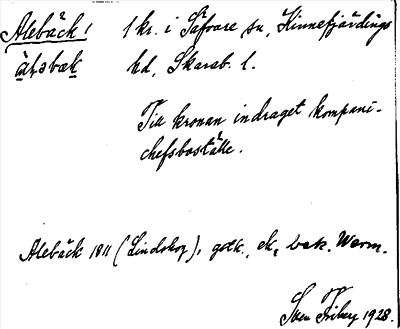 Alebäck! 1 kr. i Säfvare sn, Kinnefjärdings
hd, Skarab. l.
Till kronan indraget kompani-
chefsboställe.
Alebäck 1811 (Lindskog), gotk., ek, bak. Warm.
Sven Friberg 1928.